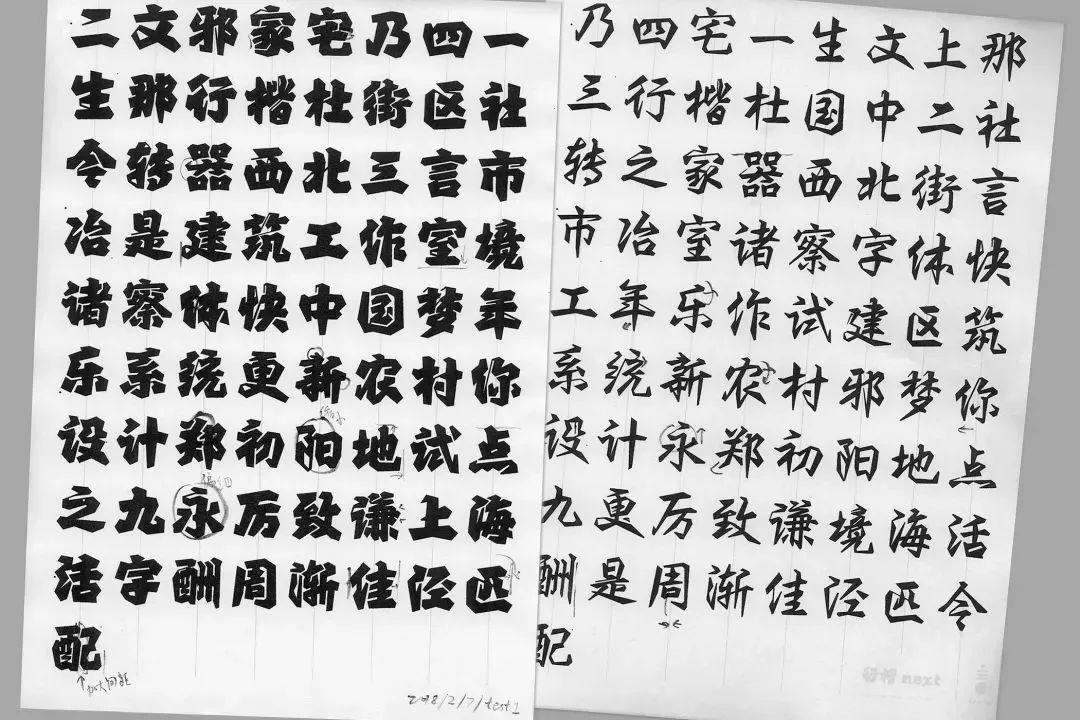 二文邪家宅乃四一
生那行楷杜街区社
令转器西北三言市
冶是建筑工作室境
诸察体快中国梦年
乐系统更新农村你
设计郑初阳地试点
之九永厉致谦上海
活字酬周渐佳泾匹
配
加大间距
2018/2/7/test1
乃四宅一生文上那
三行楷杜国中二社
转之家器西北街言
市冶室诸察字体快
工年乐作试建区筑
系统新农村邪梦你
设计永郑初阳地点
九更厉致谦境海活
酬是周渐佳泾匹令
配
行楷 next